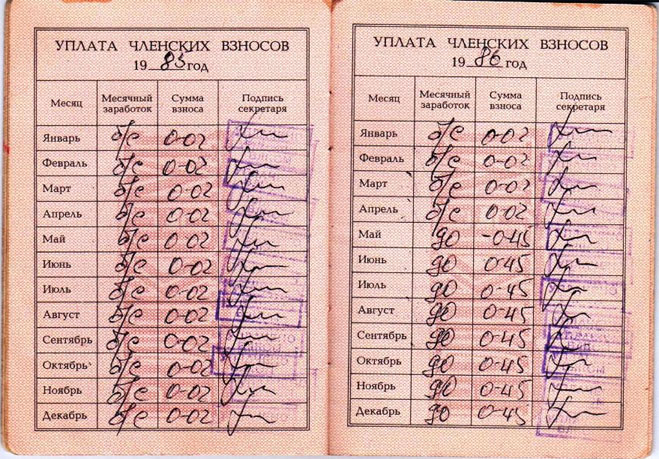 УПЛАТА ЧЛЕНСКИХ ВЗНОСОВ
1985 год
Месяц Месячный заработок Сумма взноса Подпись секретаря
Январь б/с 0-02
Февраль б/с 0-02
Март б/с 0-02
Апрель б/с 0-02
Май б/с 0-02
Июнь б/с 0-02
Июль б/с 0-02
Август б/с 0-02
Сентябрь б/с 0-02
Октябрь б/с 0-02
Ноябрь б/с 0-02
Декабрь б/с 0-02
УПЛАТА ЧЛЕНСКИХ ВЗНОСОВ
1986 год
Месяц Месячный заработок Сумма взноса Подпись секретаря
Январь б/с 0-02
Февраль б/с 0-02
Март б/с 0-02
Апрель б/с 0-02
Май 90 -0-45
Июнь 90 0-45
Июль 90 0-45
Август 90 0-45
Сентябрь 90 0-45
Октябрь 90 0-45
Ноябрь 90 0-45
Декабрь 90 0-45